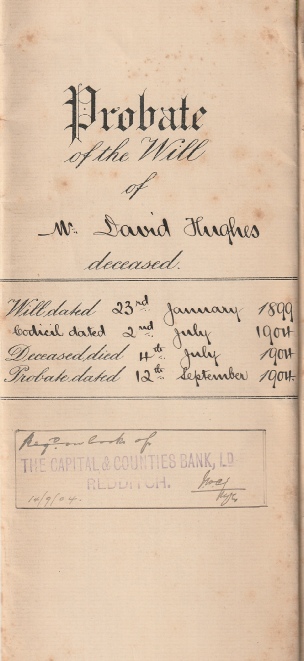 Probate
of the Will
of
Mr. David Hughes
deceased.
Will dated 23rd January 1899
Codicil dated 2nd July 1904
Deceased died 4th July 1904
Probate dated 12th September 1904.
Regd on books of
THE CAPITAL & COUNTIES BANK, LD
REDDITCH.